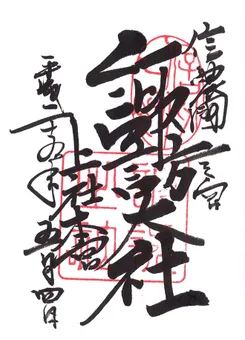 信濃國一之宮
諏訪大社
上社本宮
平成二十五年五月四日